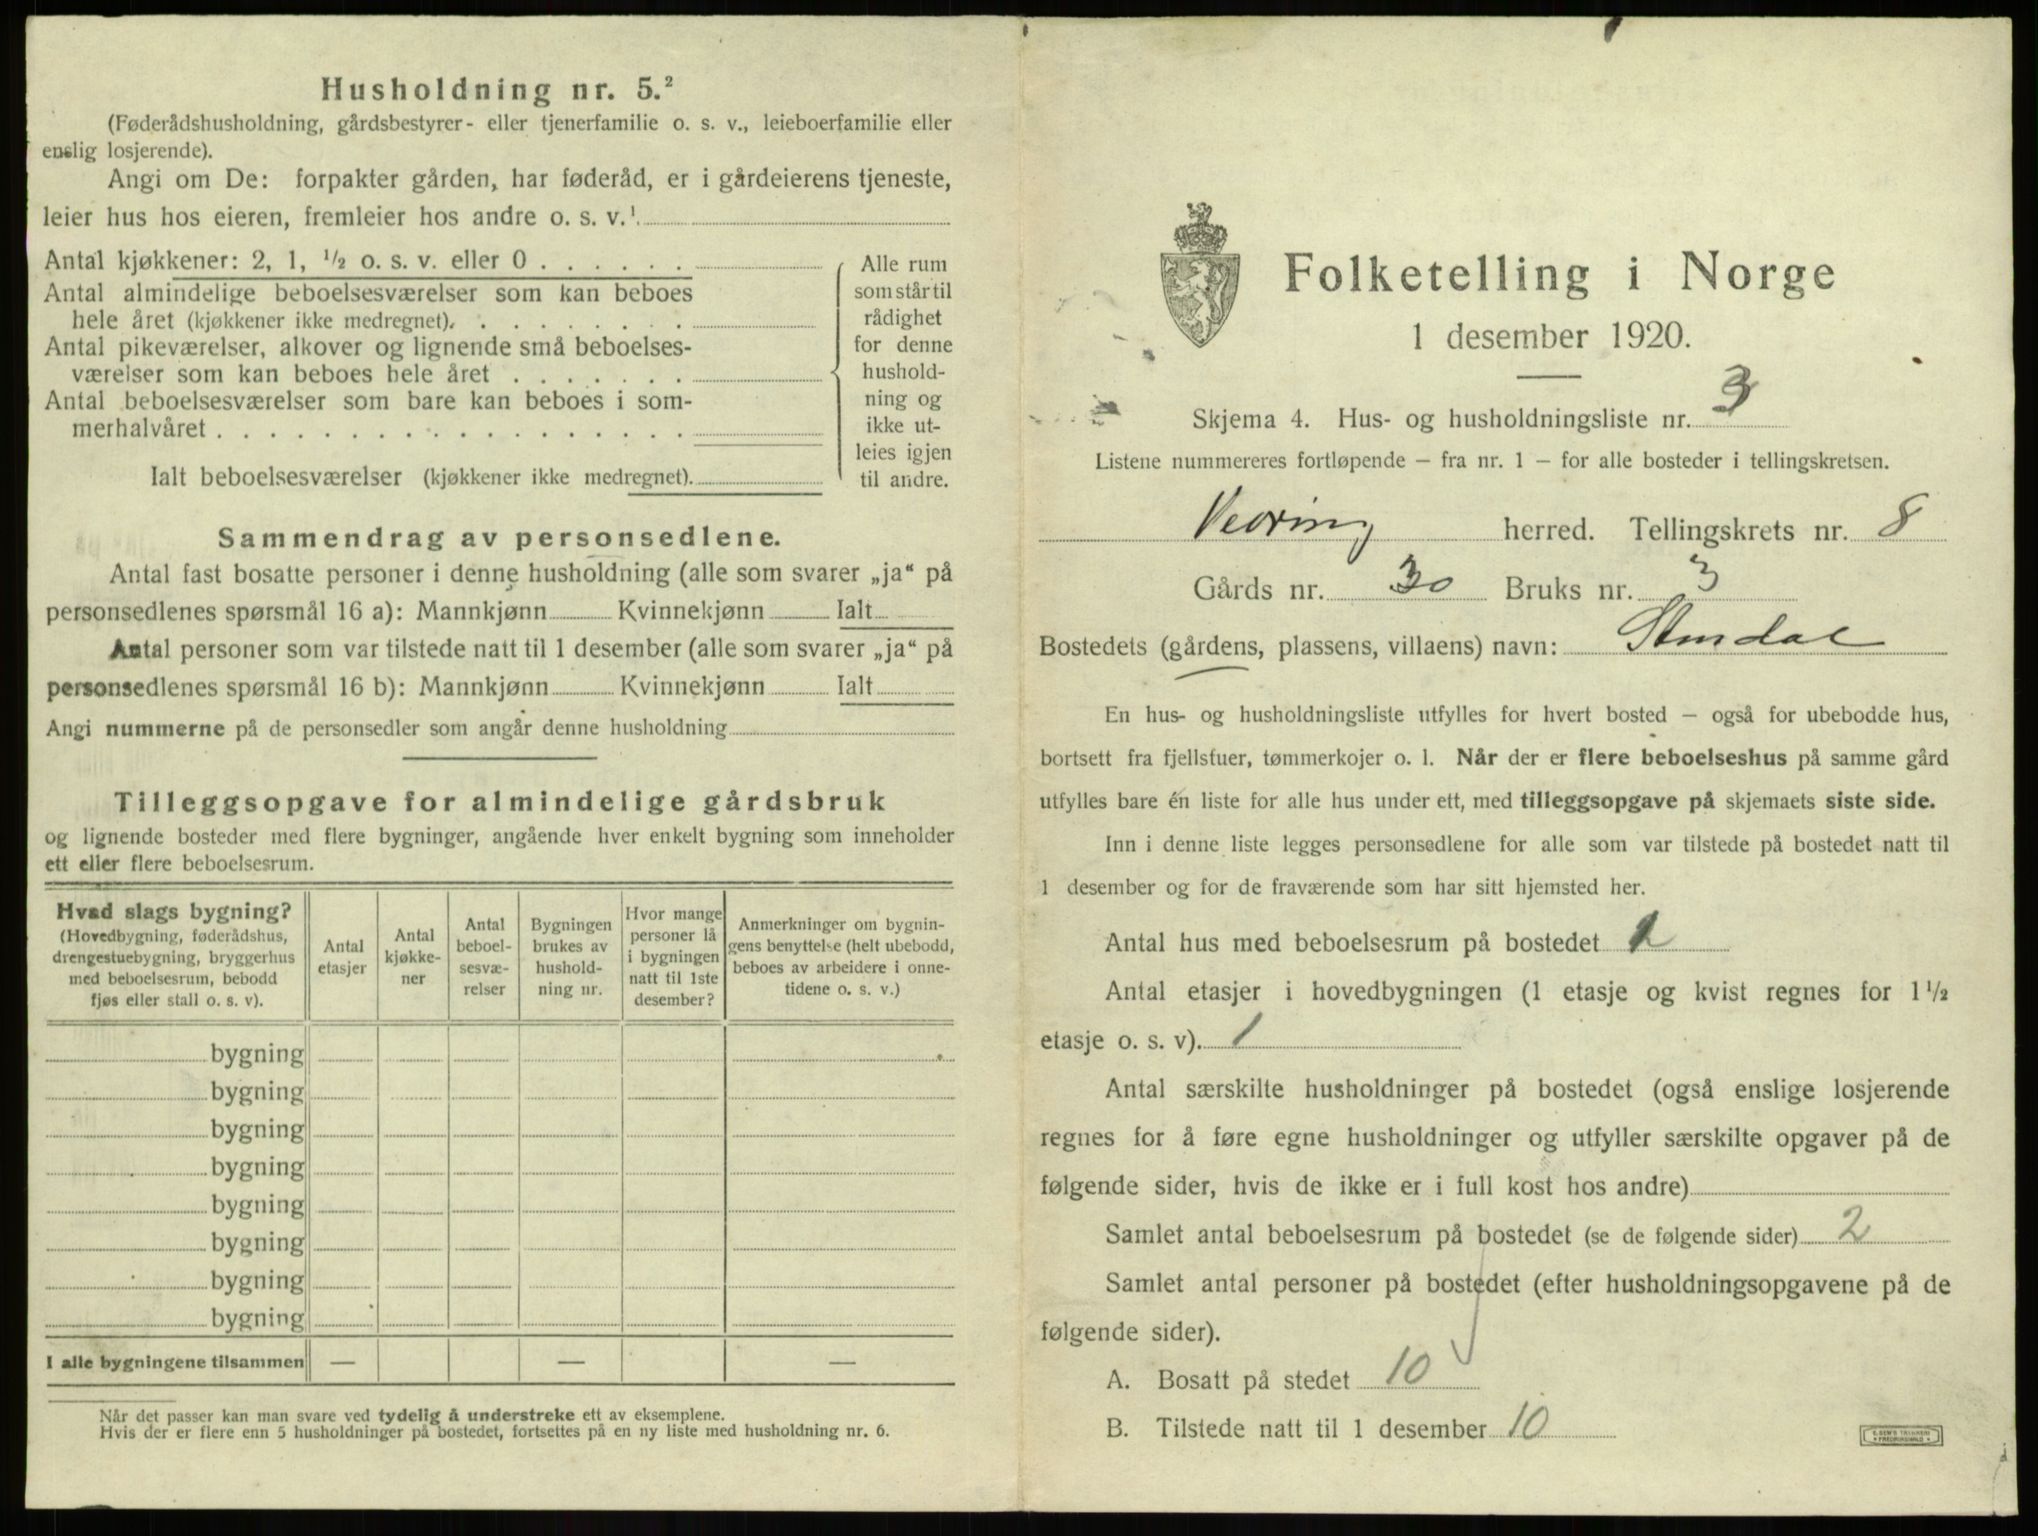 Husholdning nr. 5.²
(Føderådshusholdning, gårdsbestyrer- eller tjenerfamilie o. s. v., leieboerfamilie eller
enslig losjerende).
Angi om De: forpakter gården, har føderåd, er i gårdeierens tjeneste,
leier hus hos eieren, fremleier hos andre o. s. v.¹
Antal kjøkkener: 2, 1, ½ o. s. v. eller 0
Antal almindelige beboelsesværelser som kan beboes
hele året (kjøkkener ikke medregnet)
Antal pikeværelser, alkover og lignende små beboelses-
værelser som kan beboes hele året
Antal beboelsesværelser som bare kan beboes i som-
merhalvåret
Ialt beboelsesværelser (kjøkkener ikke medregnet)
Alle rum
som står til
rådighet
for denne
hushold-
ning og
ikke ut-
leies igjen
til andre.
Sammendrag av personsedlene.
Antal fast bosatte personer i denne husholdning (alle som svarer „ja“ på
personsedlenes spørsmål 16 a): Mannkjønn Kvinnekjønn Ialt
Antal personer som var tilstede natt til 1 desember (alle som svarer „ja“ på
personsedlenes spørsmål 16 b): Mannkjønn Kvinnekjønn Ialt
Angi nummerne på de personsedler som angår denne husholdning
Tilleggsopgave for almindelige gårdsbruk
og lignende bosteder med flere bygninger, angående hver enkelt bygning som inneholder
ett eller flere beboelsesrum.
Hvad slags bygning?
(Hovedbygning, føderådshus,
drengestuebygning, bryggerhus
med beboelsesrum, bebodd
fjøs eller stall o. s. v).
Antal
etasjer
Antal
kjøkke-
ner
Antal
beboel-
sesvæ-
relser
Bygningen
brukes av
hushold-
ning nr.
Hvor mange
personer lå
i bygningen
natt til 1ste
desember?
Anmerkninger om bygnin-
gens benyttelse (helt ubebodd,
beboes av arbeidere i onne-
tidene o. s. v.)
bygning
bygning
bygning
bygning
bygning
bygning
bygning
bygning
I alle bygningene tilsammen — — —
Når det passer kan man svare ved tydelig å understreke ett av eksemplene.
Hvis der er flere enn 5 husholdninger på bostedet, fortsettes på en ny liste med husholdning nr. 6.
Folketelling i Norge
1 desember 1920.
Skjema 4. Hus- og husholdningsliste nr. 3
Listene nummereres fortløpende — fra nr. 1 — for alle bosteder i tellingskretsen.
Vevring herred. Tellingskrets nr. 8
Gårds nr. 30 Bruks nr. 3
Bostedets (gårdens, plassens, villaens) navn:
En hus- og husholdningsliste utfylles for hvert bosted — også for ubebodde hus,
bortsett fra fjellstuer, tømmerkojer o. l. Når der er flere beboelseshus på samme gård
utfylles bare én liste for alle hus under ett, med tilleggsopgave på skjemaets siste side.
Inn i denne liste legges personsedlene for alle som var tilstede på bostedet natt til
1 desember og for de fraværende som har sitt hjemsted her.
Antal hus med beboelsesrum på bostedet
Antal etasjer i hovedbygningen (1 etasje og kvist regnes for 1½
etasje o. s. v). 1
Antal særskilte husholdninger på bostedet (også enslige losjerende
regnes for å føre egne husholdninger og utfyller særskilte opgaver på de
følgende sider, hvis de ikke er i full kost hos andre)
Samlet antal beboelsesrum på bostedet (se de følgende sider) 2
Samlet antal personer på bostedet (efter husholdningsopgavene på de
følgende sider).
A. Bosatt på stedet 10
B. Tilstede natt til 1 desember 10